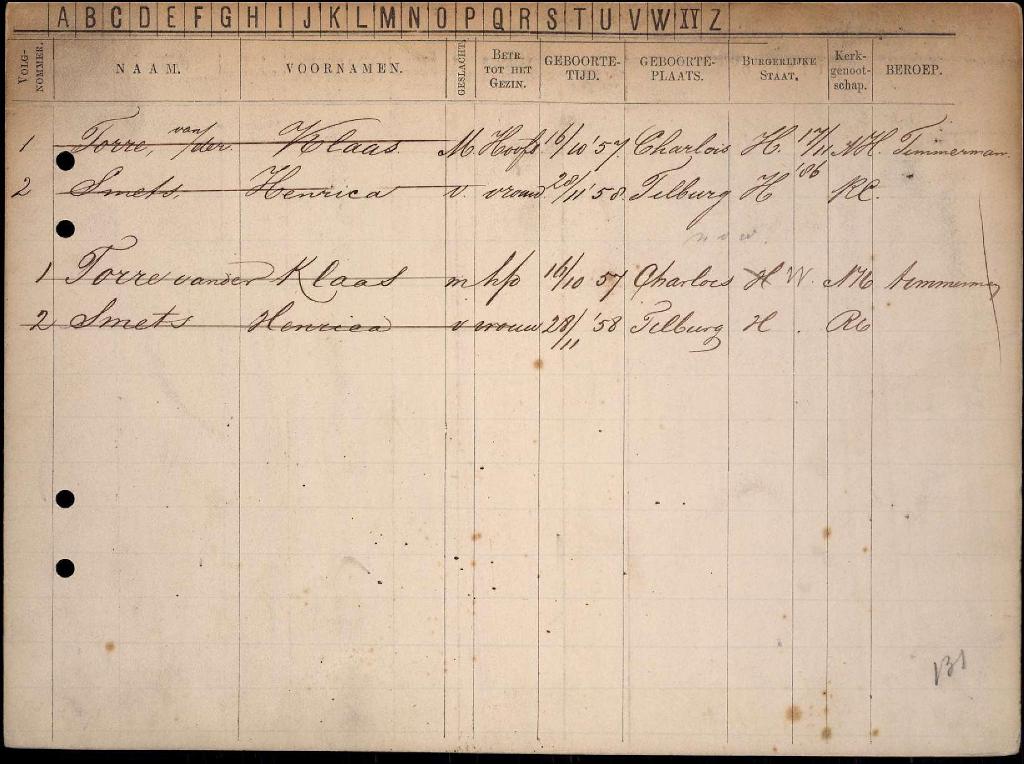 A B C D E F G H I J K L M N O P Q R S T U V W IJ Z
VOLG-NOMMER. NAAM. VOORNAMEN. GESLACHT. BETR. TOT HET GEZIN. GEBOORTE-TIJD. GEBOORTE-PLAATS. BURGERLIJKE STAAT. Kerk-genoot-schap. BEROEP.
1 Torre, van der Klaas. M. Hoofd 16/10 '57. Charlois H. 17/11 '86 NH. Timmerman.
2 Smets, Henrica v. vrouw 28/11 '58. Tilburg H RC.
1 Torre van der Klaas m hfd 16/10 57 Charlois H W. NH timmerman
2 Smets Henrica v vrouw 28/11 '58 Tilburg H. RC
131